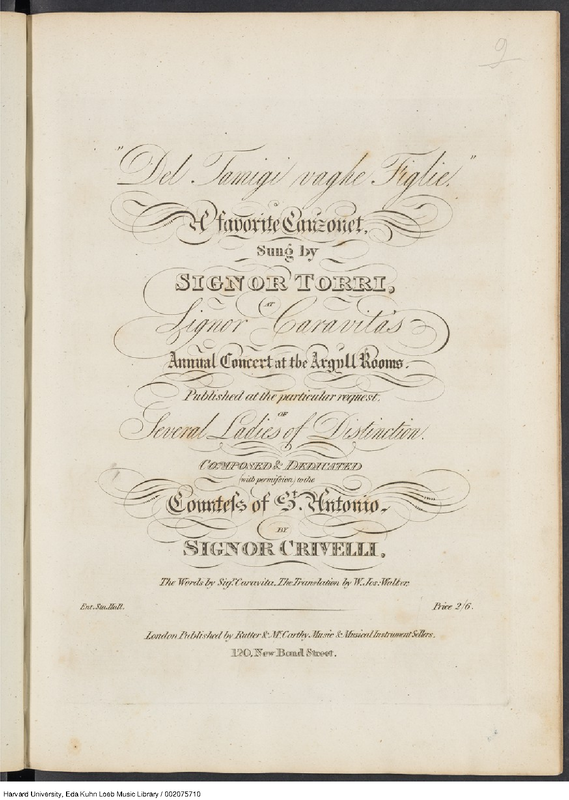 9
"Del Tamigi vaghe Figlie."
A favorite Canzonet,
Sung by
SIGNOR TORRI,
AT
Signor Caravita's
Annual Concert at the Argyll Rooms.
Published at the particular request,
OF
Several Ladies of Distinction.
COMPOSED & DEDICATED
(with permiſsion) to the
Counteſs of St. Antonio,
BY
SIGNOR CRIVELLI.
The Words by Sigr. Caravita. The Translation by W. Jos: Walter.
Ent. Sta. Hall. Price 2/6.
London Published by Rutter & Mc.Carthy, Music & Musical Instrument Sellers,
120, New Bond Street.
Harvard University, Eda Kuhn Loeb Music Library / 002075710